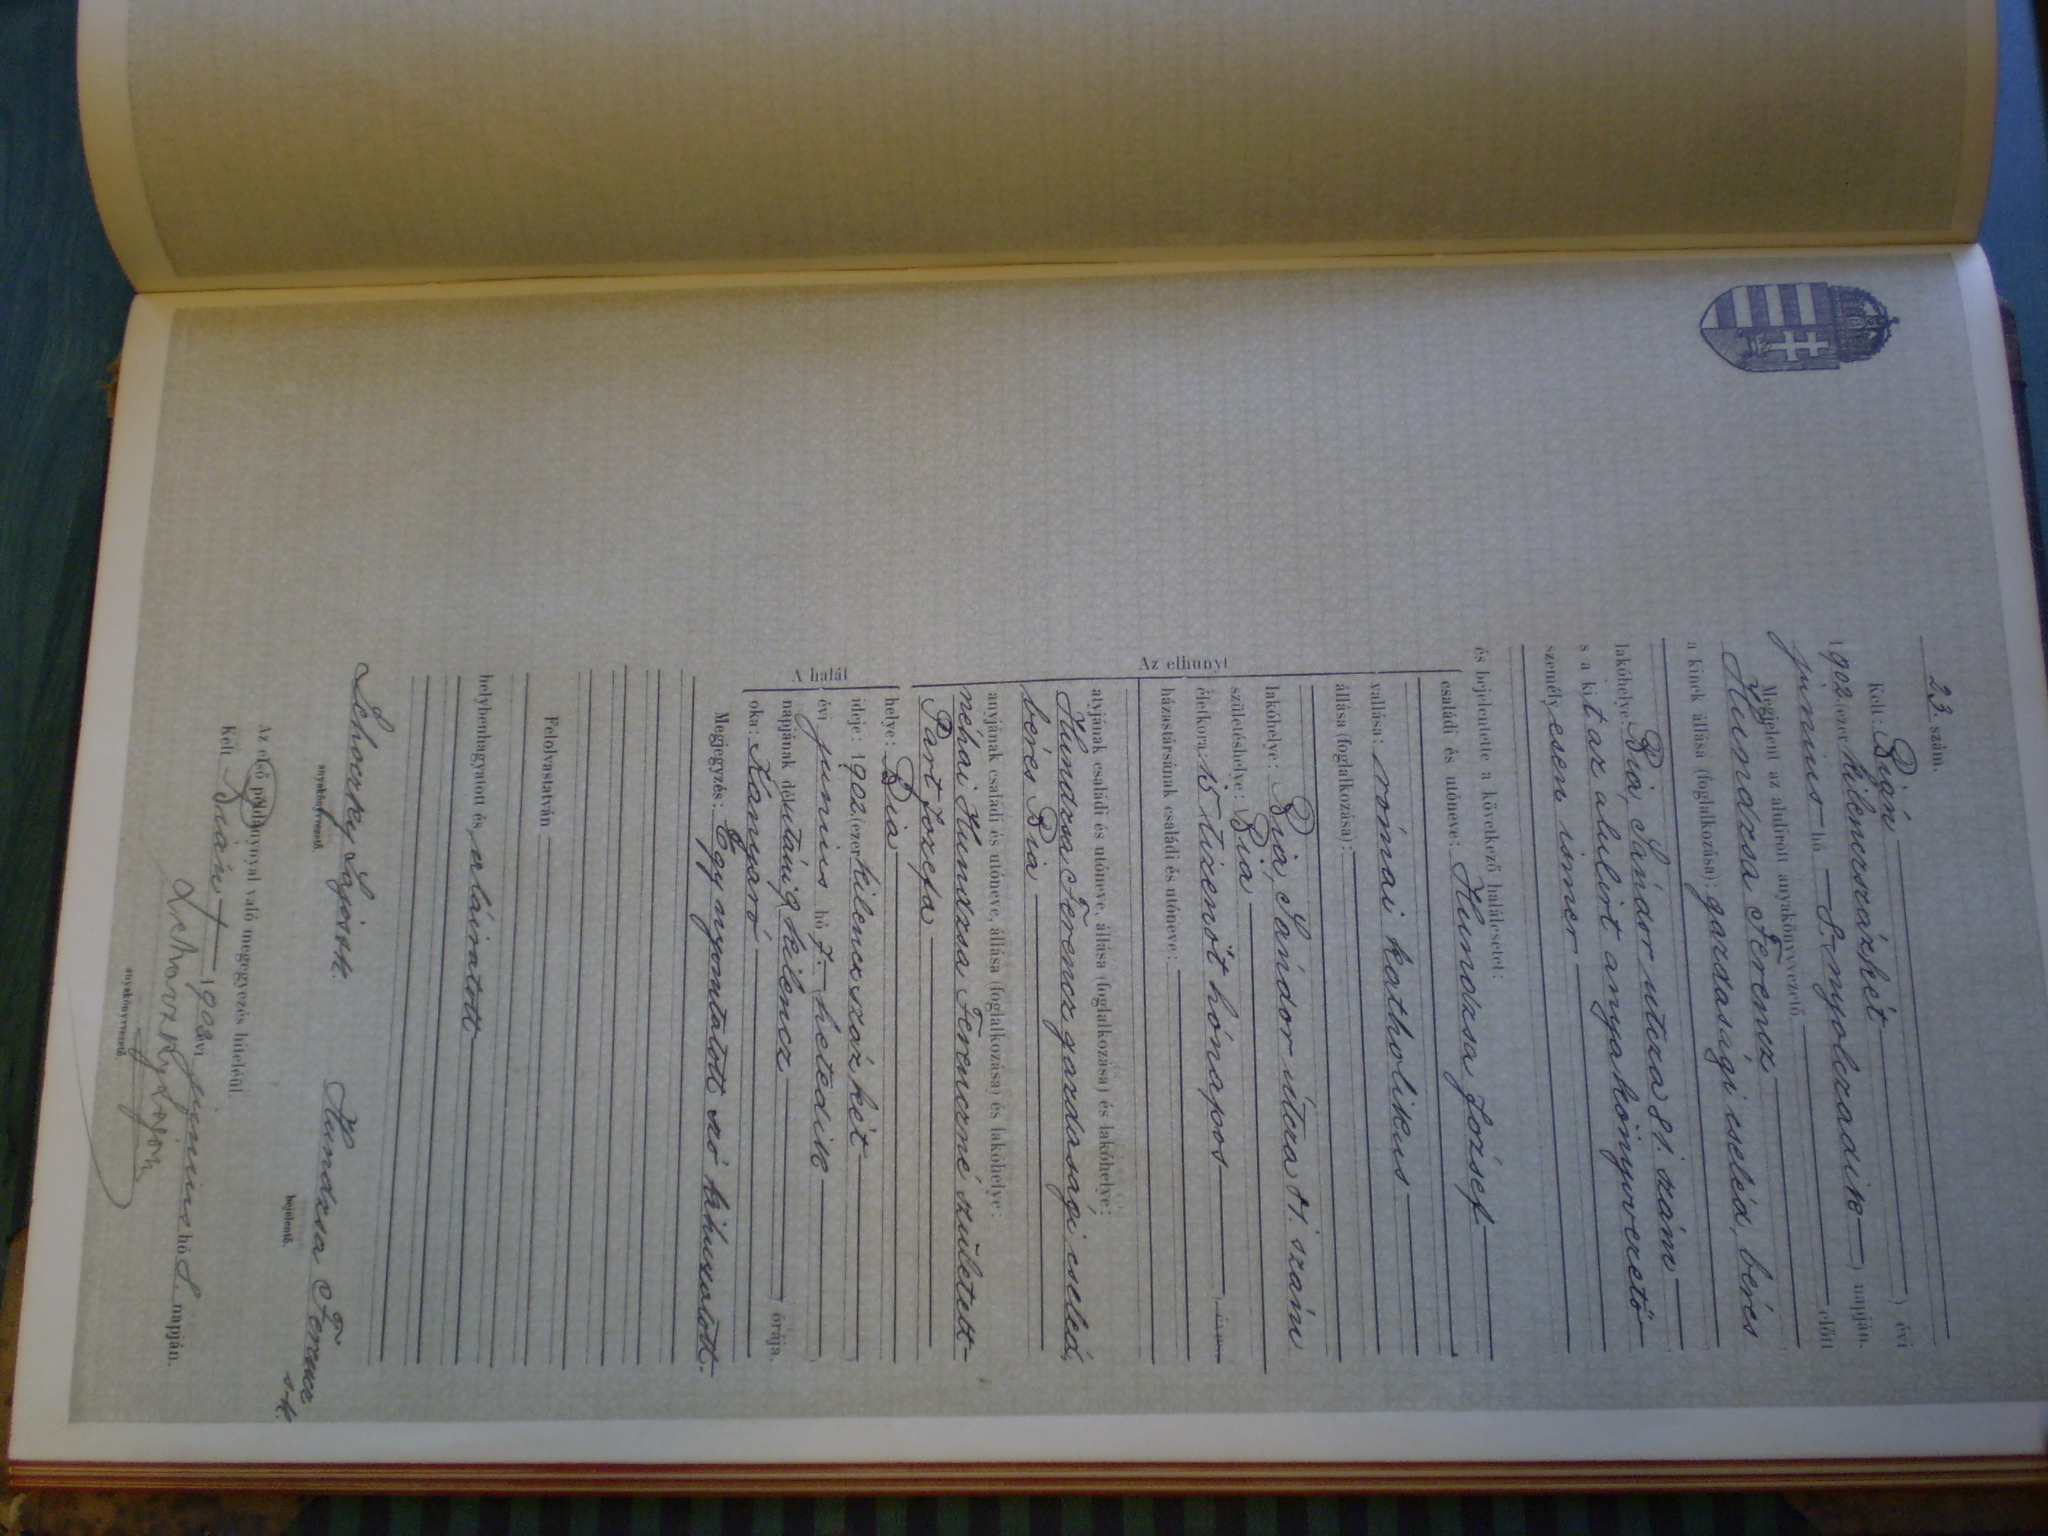 23. szám.
Kelt: Bián ) évi
1902.(ezer kilenczszázkét
junius hó 8. nyolczadik ) napján.
Megjelent az alulirott anyakönyvvezető előtt
Hundzsa Ferencz
a kinek állása (foglalkozása): gazdasági cseléd, béres
lakóhelye: Bia, Sándor utcza 81. szám
s a kit az alulirt anyakönyvvezető
személyesen ismer
és bejelentette a következő halálesetet:
Az elhunyt
családi és utóneve: Hundzsa József
vallása: római katholikus
állása (foglalkozása):
lakóhelye: Bia, Sándor útcza 81. szám
születéshelye: Bia
életkora: 15 tizenöt hónapos ) éves
házastársának családi és utóneve:
atyjának családi és utóneve, állása (foglalkozása) és lakóhelye:
Hundzsa Ferencz gazdasági cseléd,
béres Bia
anyjának családi és utóneve, állása (foglalkozása) és lakóhelye:
néhai Hundzsa Ferenczné született
Part Jozefa
A halál
helye: Bia
ideje: 1902.(ezer kilenczszázkét )
évi junius hó 7. hetedik )
napjának délutáni 9 kilencz ) órája.
oka: Kanyaró
Megjegyzés: Egy nyomtatott szó kihuzatott.
Felolvastatván
helybenhagyatott és aláiratott
Lehoczky Lajos s.k. Hundzsa Ferencz s.k.
anyakönyvvezető. bejelentő.
Az első példánynyal való megegyezés hiteléül
Kelt Bián 1902 évi junius hó 8. napján.
Lehoczky Lajos
anyakönyvvezető.